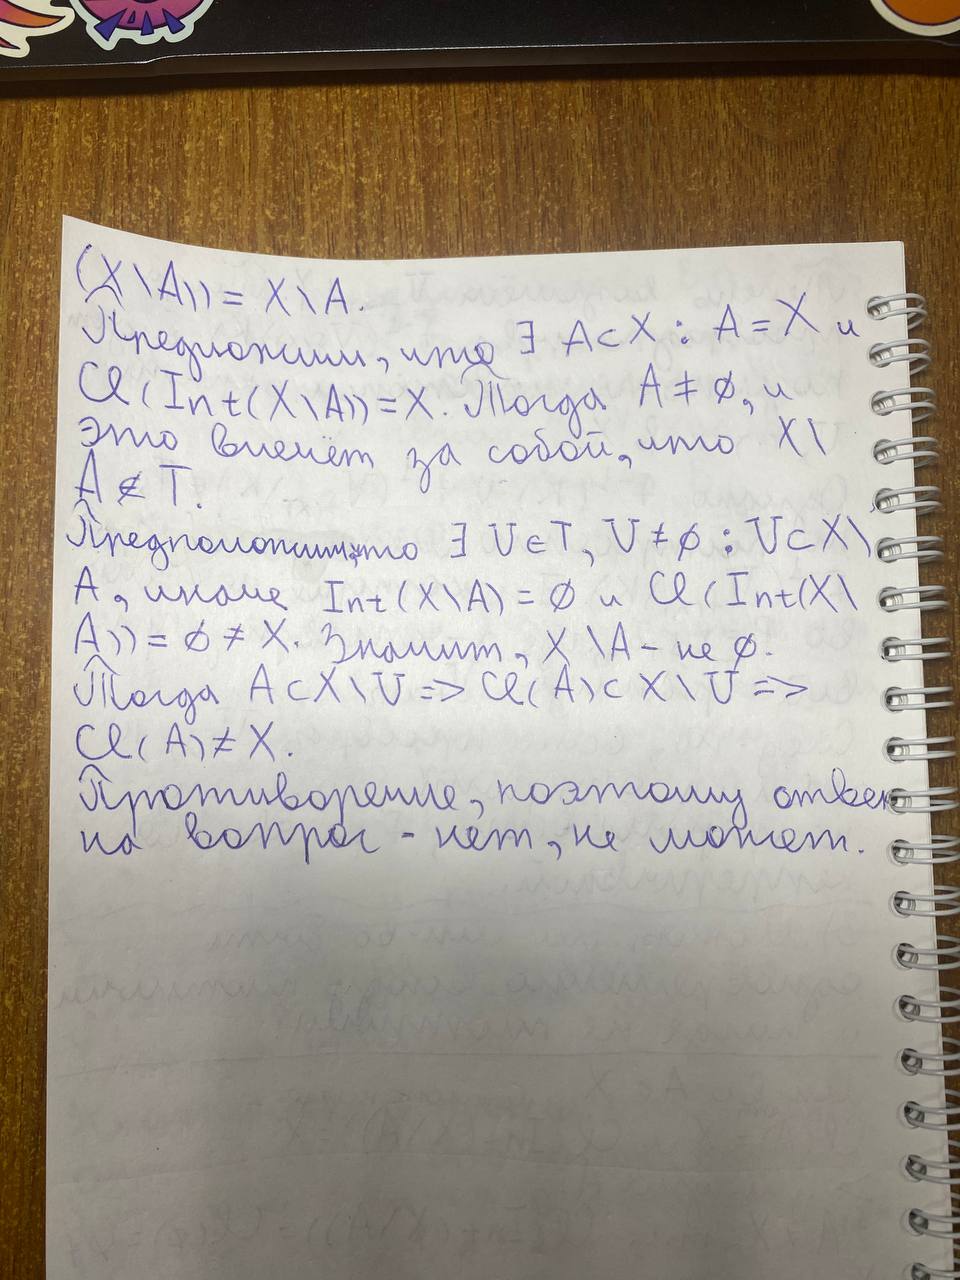 (X\A)) = X\A.
Предположим, что ∃ A⊂X : A = X и
Cl(Int(X\A)) = X. Тогда A ≠ ∅, и
это влечёт за собой, что X\
A ∉ T.
Предположим, что ∃ U∈T, U≠∅ : U⊂X\
A, иначе Int(X\A) = ∅ и Cl(Int(X\
A)) = ∅ ≠ X. Значит, X\A – не ∅.
Тогда A⊂X\U => Cl(A)⊂X\U =>
Cl(A) ≠ X.
Противоречие, поэтому ответ
на вопрос – нет, не может.